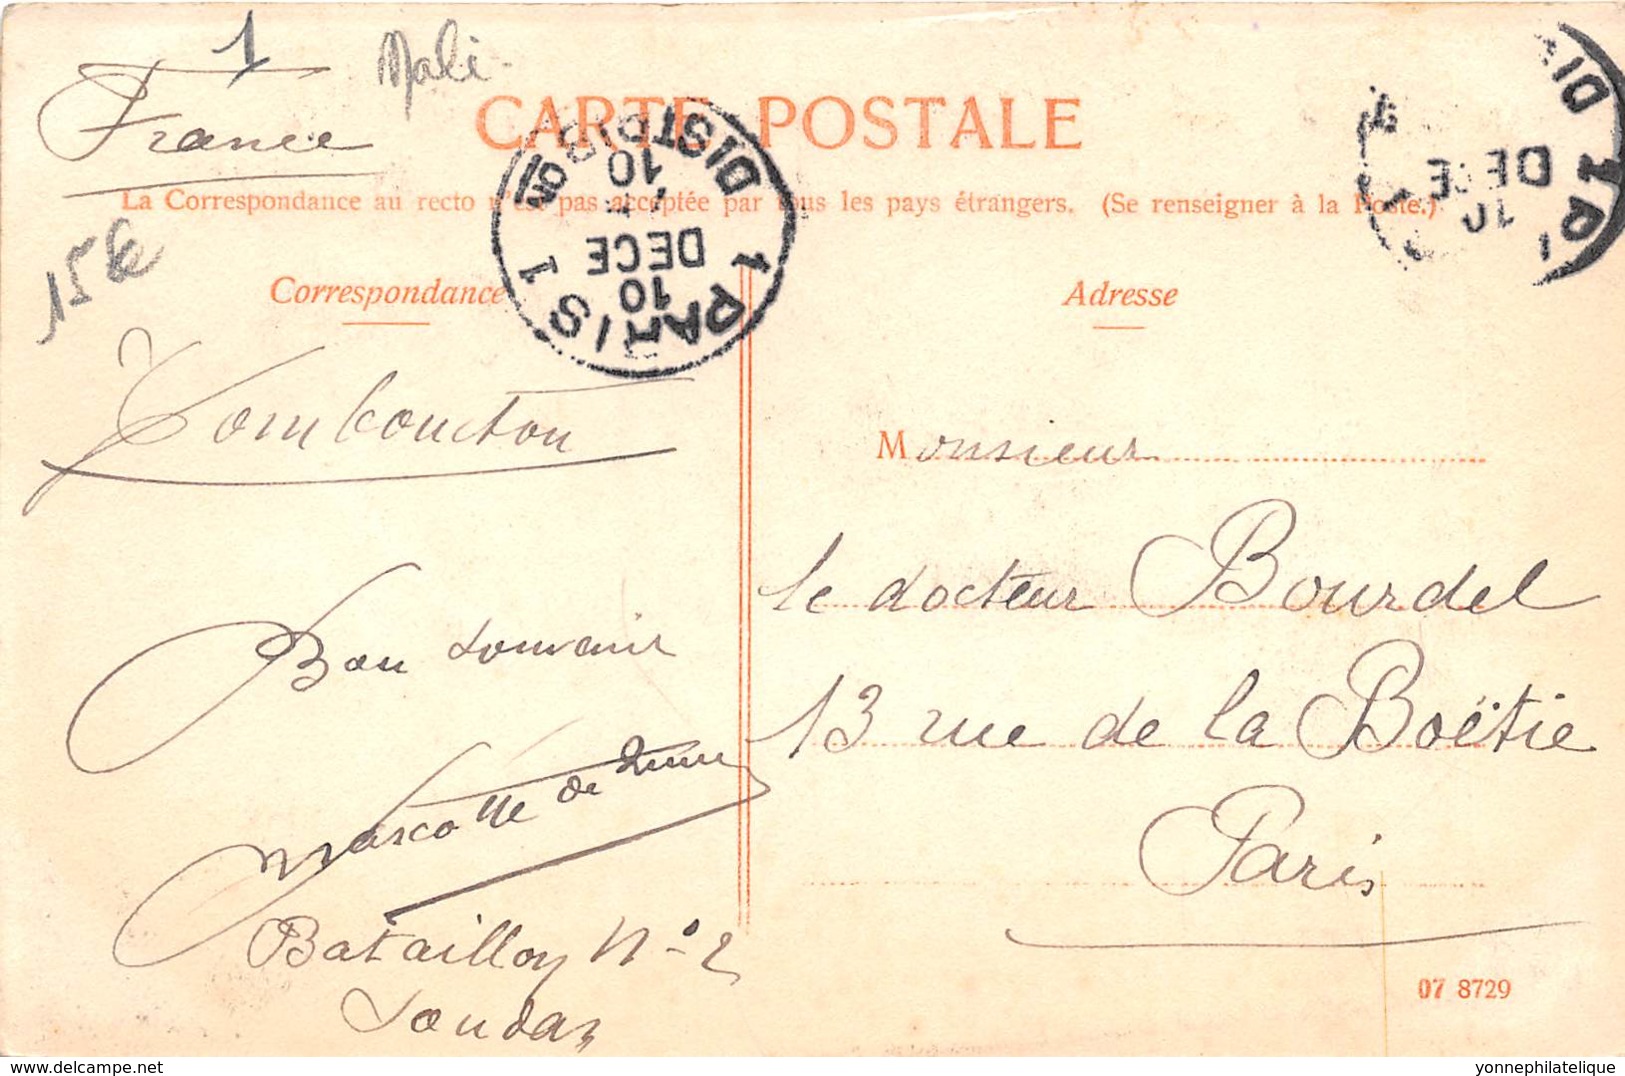 1
Mali
France
CARTE POSTALE
La Correspondance au recto n'est pas acceptée par tous les pays étrangers. (Se renseigner à la Poste.)
15€
PARIS 1 DISTRIBON
10
DECE
10
DECE
10
Correspondance
Adresse
Tombouctou
Monsieur
le docteur Bourdel
13 rue de la Boëtie
Paris
Bon souvenir
Mascotte de
Bataillon N° 2
Soudan
07 8729
delcampe.net
yonnephilatelique